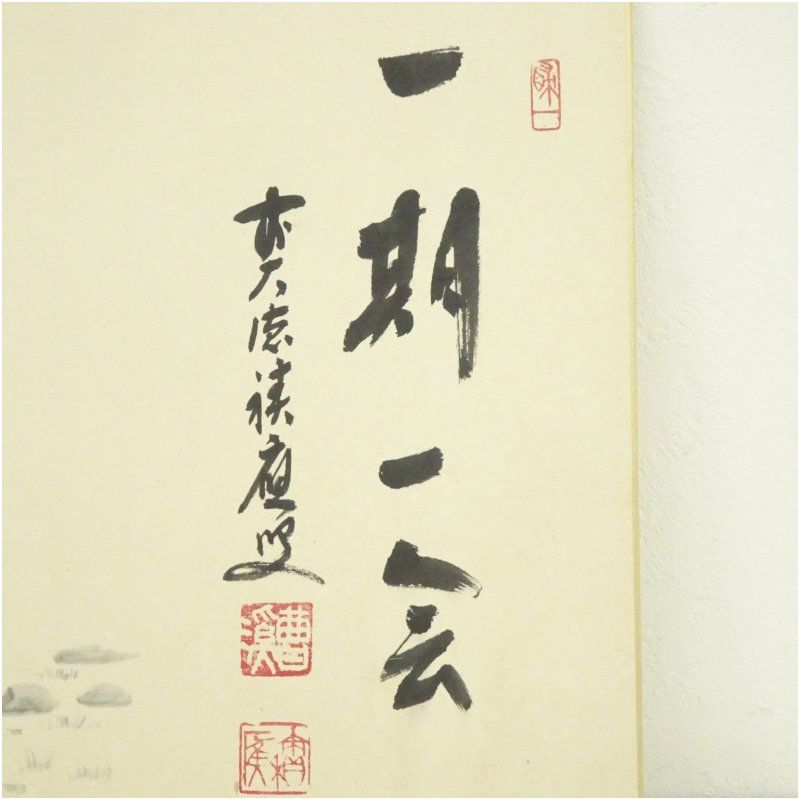 一期一会
前大徳積應叟